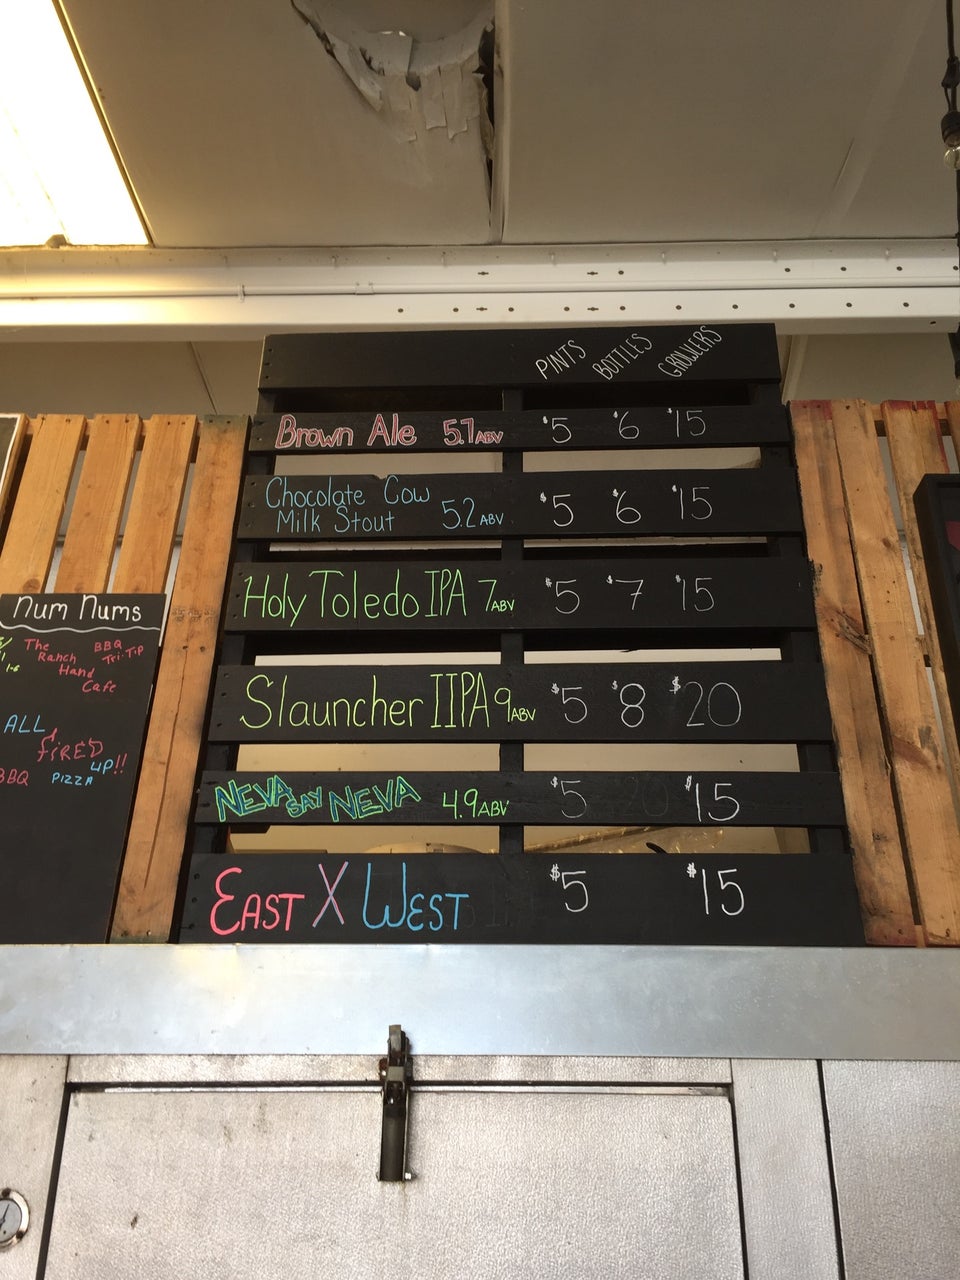 PINTS BOTTLES GROWLERS
Brown Ale 5.7 ABV $5 $6 $15
Chocolate Cow
Milk Stout 5.2 ABV $5 $6 $15
Holy Toledo IPA 7 ABV $5 $7 $15
Slauncher IIPA 9 ABV $5 $8 $20
NEVA SAY NEVA 4.9 ABV $5 $15
EAST X WEST $5 $15
Num Nums
The
Ranch
Hand
Cafe
BBQ
Tri-Tip
ALL
FIRED
UP!!
BBQ PIZZA